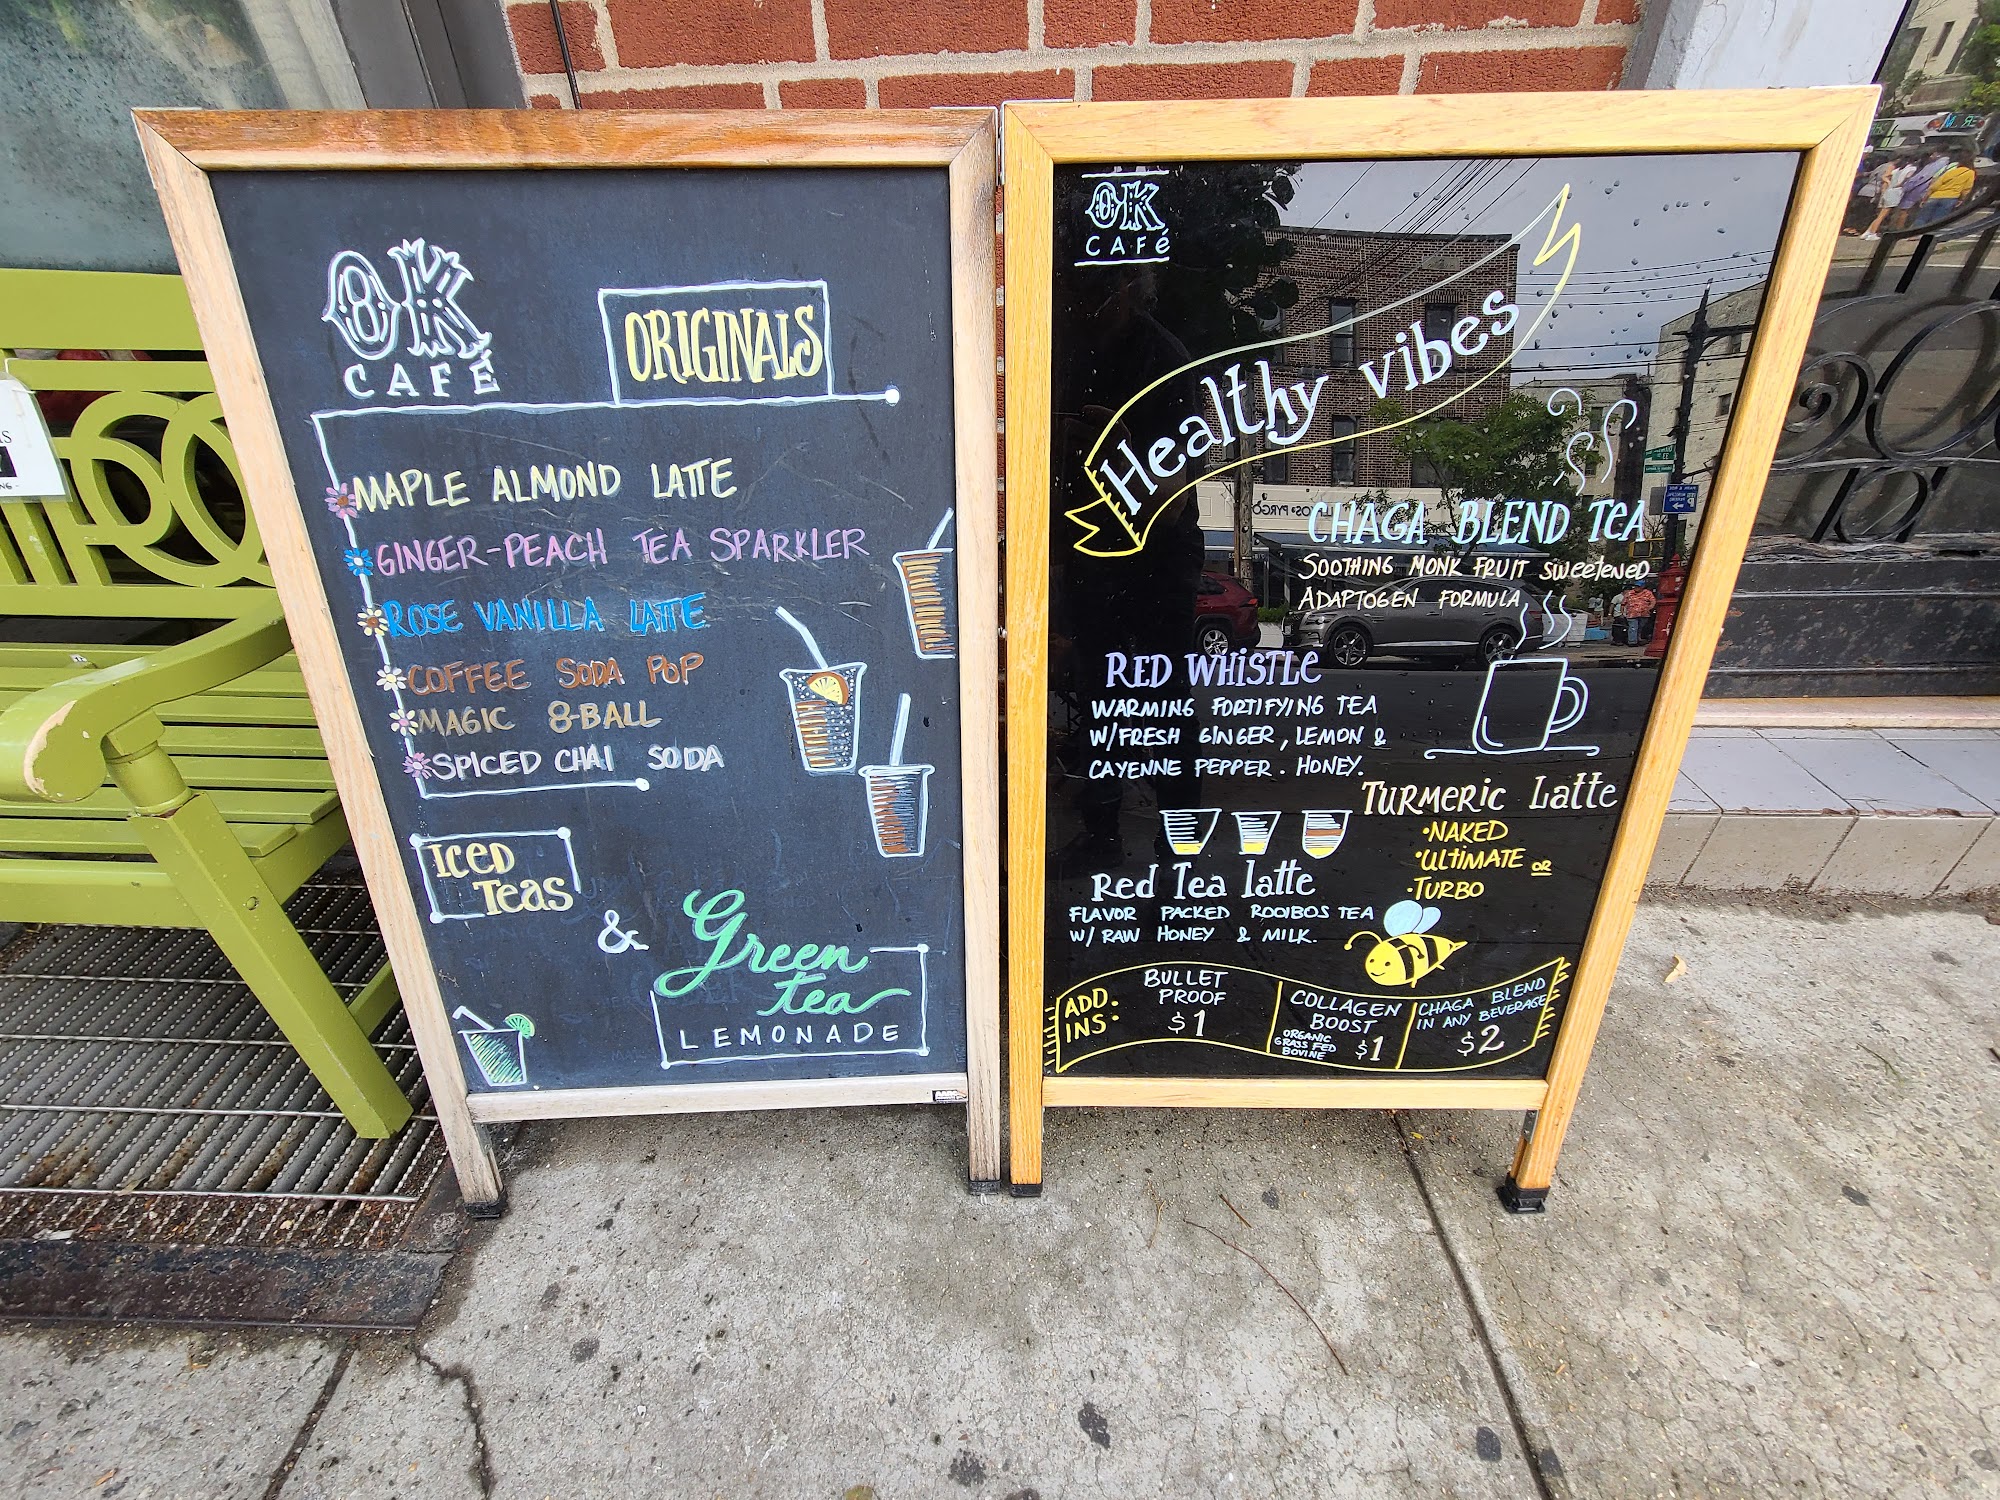 OK
CAFÉ
ORIGINALS
MAPLE ALMOND LATTE
GINGER-PEACH TEA SPARKLER
ROSE VANILLA LATTE
COFFEE SODA POP
MAGIC 8-BALL
SPICED CHAI SODA
ICED
TEAS
&
Green
tea
LEMONADE
OK
CAFé
Healthy vibes
CHAGA BLEND TEA
SOOTHING MONK FRUIT SWEETENED
ADAPTOGEN FORMULA
RED WHISTLE
WARMING FORTIFYING TEA
W/FRESH GINGER, LEMON &
CAYENNE PEPPER. HONEY.
TURMERIC Latte
•NAKED
•ULTIMATE OR
•TURBO
Red Tea latte
FLAVOR PACKED ROOIBOS TEA
W/ RAW HONEY & MILK.
ADD.
INS:
BULLET
PROOF
$1
COLLAGEN
BOOST
ORGANIC
GRASS FED
BOVINE
$1
CHAGA BLEND
IN ANY BEVERAGE
$2